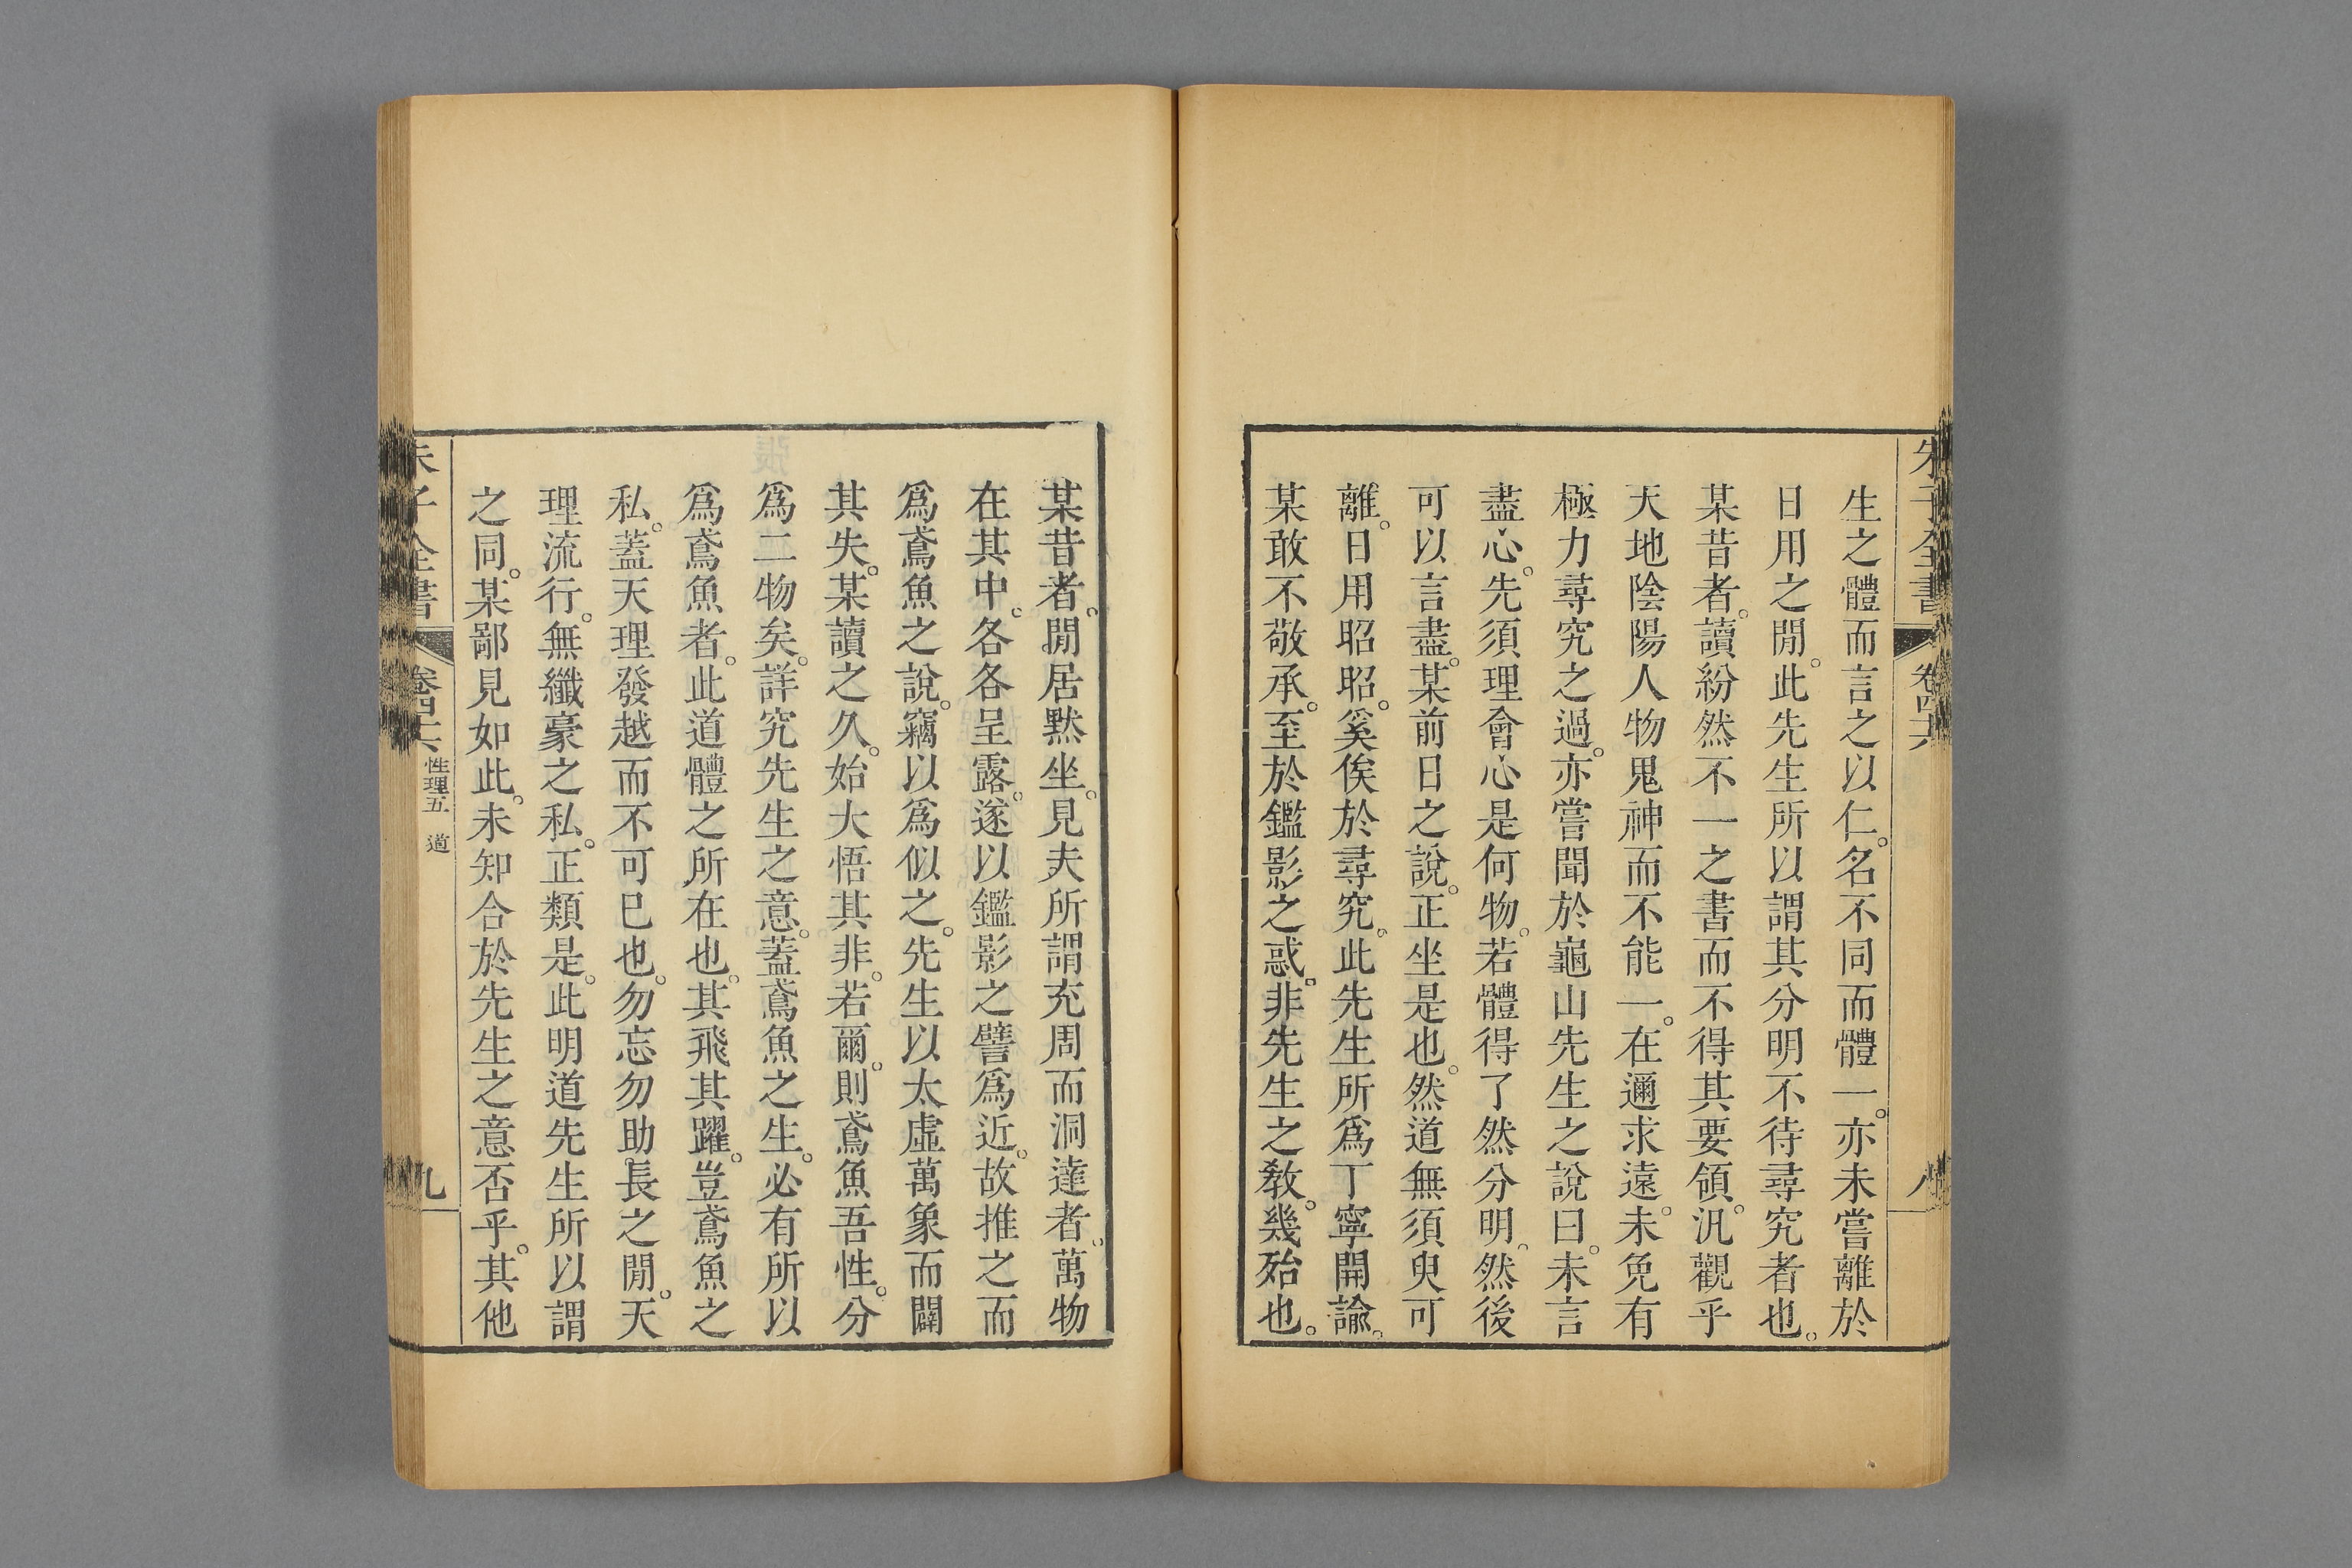 朱子全書 卷四六 八
生之體而言之以仁。名不同而體一。亦未嘗離於
日用之閒。此先生所以謂其分明不待尋究者也。
某昔者。讀紛然不一之書而不得其要領。汎觀乎
天地陰陽人物鬼神而不能一。在邇求遠。未免有
極力尋究之過。亦嘗聞於龜山先生之說曰。未言
盡心。先須理會心是何物。若體得了然分明。然後
可以言盡。某前日之說。正坐是也。然道無須臾可
離。日用昭昭。奚俟於尋究。此先生所爲丁寧開諭。
某敢不敬承。至於鑑影之惑。非先生之敎。幾殆也。
某昔者。閒居默坐。見夫所謂充周而洞達者。萬物
在其中。各各呈露。遂以鑑影之譬爲近。故推之而
爲鳶魚之說。竊以爲似之。先生以太虛萬象而闢
其失。某讀之久。始大悟其非。若爾。則鳶魚吾性。分
爲二物矣。詳究先生之意。蓋鳶魚之生。必有所以
爲鳶魚者。此道體之所在也。其飛其躍。豈鳶魚之
私。蓋天理發越而不可已也。勿忘勿助長之閒。天
理流行。無纖豪之私。正類是。此明道先生所以謂
之同。某鄙見如此。未知合於先生之意否乎。其他
朱子全書 卷四六 性理五 道 九